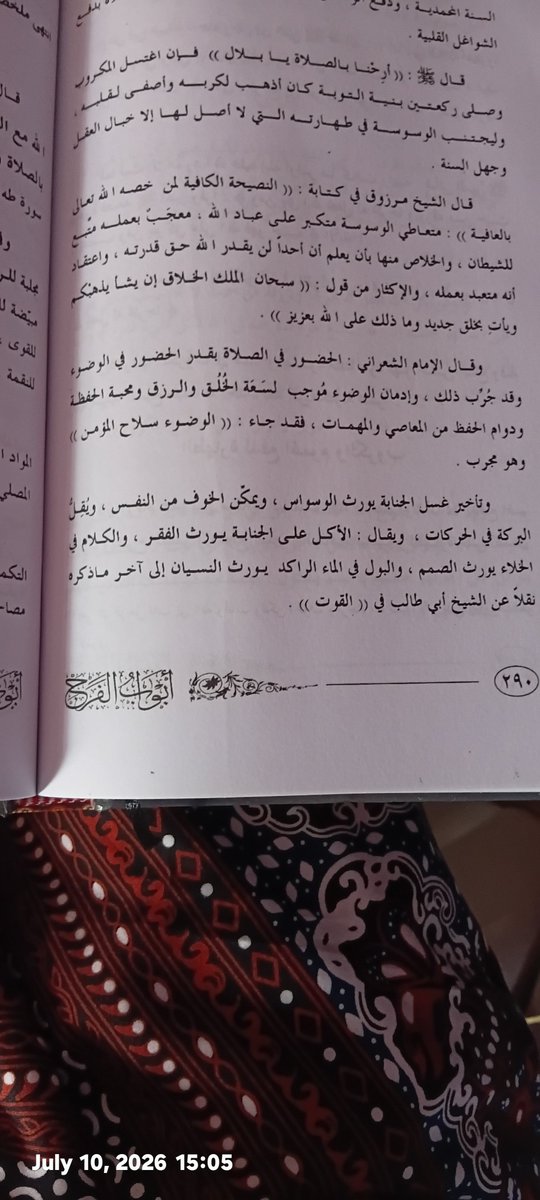 السنة المحمدية ، ودفع
الشواغل القلبية .
قال ﷺ : (( أرِحْنا بالصلاة يا بلال )) فإن اغتسل المكروب
وصلى ركعتين بنية التوبة كان أذهب لكربه وأصفى لقلبه ،
وليجتنب الوسوسة في طهارته التي لا أصل لها إلا خبال العقل
وجهل السنة .
قال الشيخ مرزوق في كتابة : (( النصيحة الكافية لمن خصه الله تعالى
بالعافية )) : متعاطي الوسوسة متكبر على عباد الله ، معجَبٌ بعمله متّبع
للشيطان ، والخلاص منها بأن يعلم أن أحداً لن يقدر الله حق قدرته ، واعتقاد
أنه متعبد بعمله ، والإكثار من قول : (( سبحان الملك الخلاق إن يشأ يذهبكم
ويأتِ بخلق جديد وما ذلك على الله بعزيز )) .
وقال الإمام الشعراني : الحضور في الصلاة بقدر الحضور في الوضوء
وقد جُرِّب ذلك ، وإدمان الوضوء مُوجب لسَعَة الخُلُق والرزق ومحبة الحفظة
ودوام الحفظ من المعاصي والمهمات ، فقد جاء : (( الوضوء سلاح المؤمن ))
وهو مجرب .
وتأخير غسل الجنابة يورث الوسواس ، ويمكّن الخوف من النفس ، ويُقِلُّ
البركة في الحركات ، ويقال : الأكل على الجنابة يورث الفقر ، والكلام في
الخلاء يورث الصمم ، والبول في الماء الراكد يورث النسيان إلى آخر ماذكره
نقلاً عن الشيخ أبي طالب في (( القوت )) .
٢٩٠
أبواب الفرج
انتهى ملخص
قال
الله مع
بالصلاة
سورة طه
مجلبة للر
مبيّضة لل
للقوى ،
للنقمة
المواد ا
المصلي
التكم
مصاد
July 10, 2026 15:05